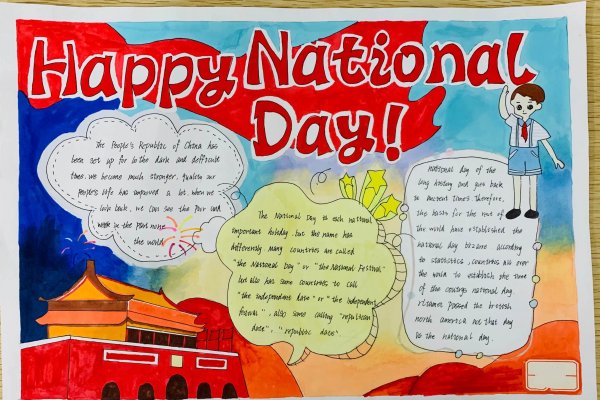 Happy National
Day!
The People's Republic of China has
been set up for the dark and difficult
time. we become much stronger.
people's life has improved a lot. when we
look back, we can see the poor and
weak in the past more
the world
The National Day is each national
important holiday, but the name has
differently many countries are called
"the National Day" or "the National Festival"
but also has some countries to call
"the independent date" or "the independent
festival", also some calling "republican
date", "republic date"
national day of the
long history and goes back
to ancient times. therefore,
the basis for the rest of
the world have established the
national day bizarre according
to statistics, countries all over
the world to establish the time
of the countrys national day
passed the british
north america act that day
the national day.